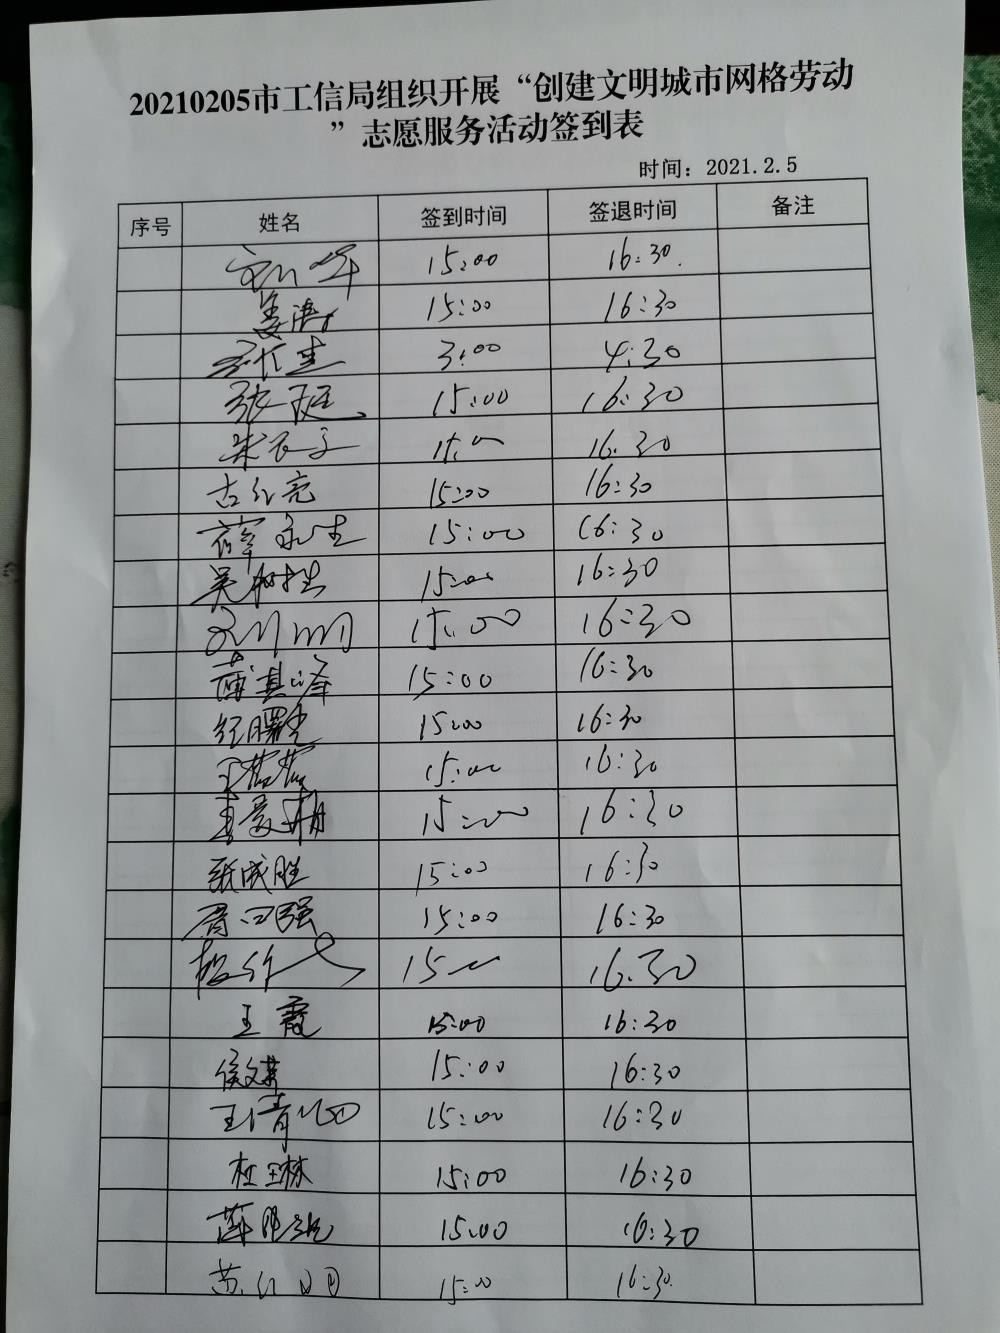 20210205市工信局组织开展“创建文明城市网格劳动
”志愿服务活动签到表
时间：2021.2.5
序号 姓名 签到时间 签退时间 备注
15:00 16:30.
姜涛 15:00 16:30
3:00 4:30
张建 15:00 16:30
15:00 16.30
古红亮 15:00 16:30
薛永生 15:00 16:30
吴树桂 15:00 16:30
15:00 16:30
蒲其峰 15:00 16:30
纪曙光 15:00 16:30
王茜茜 15:00 16:30
15:00 16:30
张成胜 15:00 16:30
15:00 16:30
15 16.30
王霞 15:00 16:30
侯文慧 15:00 16:30
15:00 16:30
杜玉林 15:00 16:30
15:00 16:30
15:00 16:30